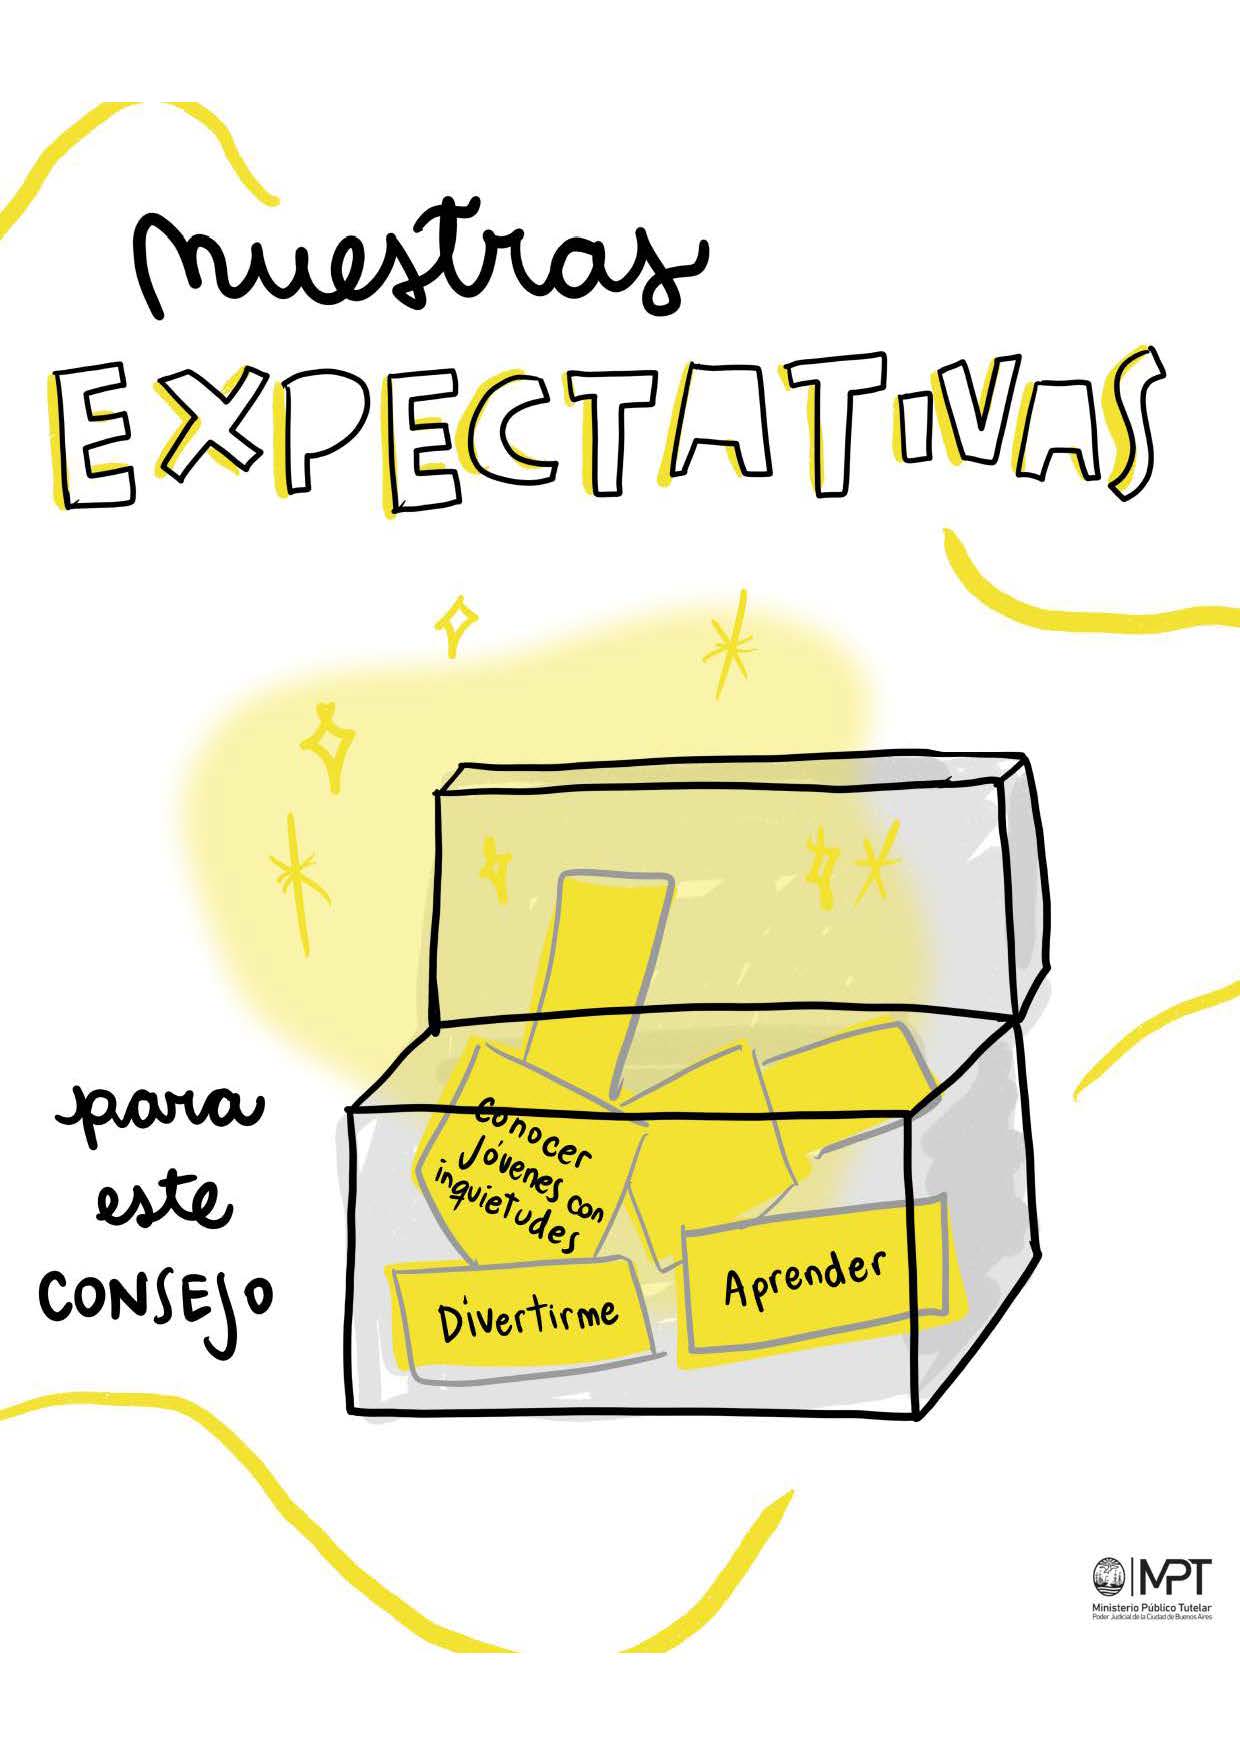 nuestras
EXPECTATIVAS
para
este
CONSEJO
Conocer
Jóvenes con
inquietudes
Divertirme
Aprender
MPT
Ministerio Público Tutelar
Poder Judicial de la Ciudad de Buenos Aires